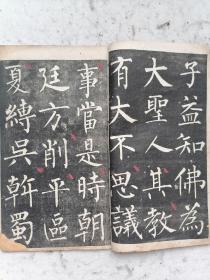 子益知佛為
大聖人其教
有大不思議
事當是時朝
廷方削平區
夏縛吳斡蜀